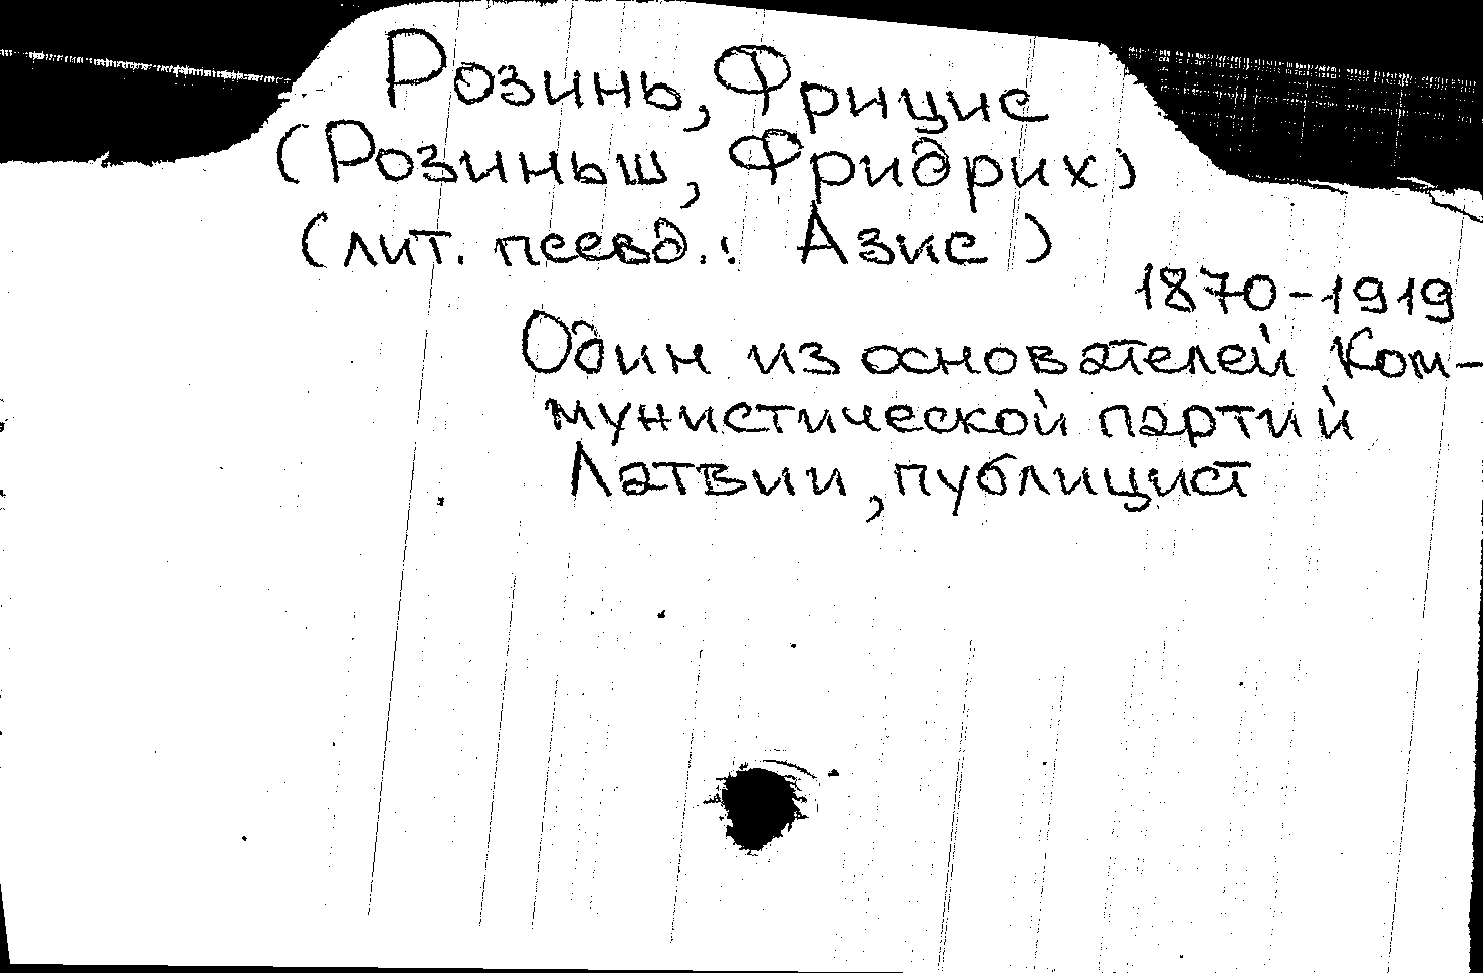 Розинь, Фрицис
(Розиньш, Фридрих)
(лит. псевд.: Азис)
1870-1919
Один из основателей Ком-
мунистической партий
Латвии, публицист